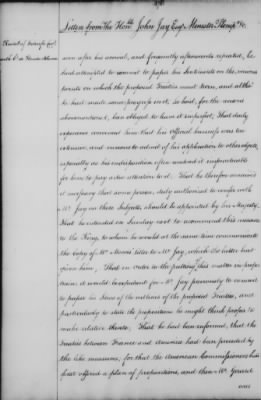 Letter from the Honble John Jay Esqr Minister Plenipo &c.
soon after his arrival, and frequently afterwards repeated, he
had attempted to commit to paper his Sentiments on the various
points on which the proposed Treaties must turn, and altho'
he had made some progress in it, he had, for the reasons
abovementioned, been obliged to leave it imperfect. That daily
experience convinced him that his Official business was too
extensive, and irksome to admit of his application to other objects,
especially as his indisposition often rendered it impracticable
for him to pay a due attention to it. That he therefore conceived
it necessary that some person, duly authorised to confer with
Mr Jay on those Subjects, should be appointed by his Majesty.
That he intended on Sunday next to recommend this measure
to the King, to whom he would at the same time communicate
the Copy of Mr Jay, which the latter had
given him. That in order to the putting this matter in proper
train, it would be expedient for Mr Jay previously to commit
to paper his Ideas of the outlines of the proposed Treaties, and
particularly to state the propositions he might think proper to
make relative thereto. That he had been informed, that the
Treaties between France and America had been preceded by
the like measures; for that the American Commissioners had
first offered a plan of propositions, and then Mr Gerard